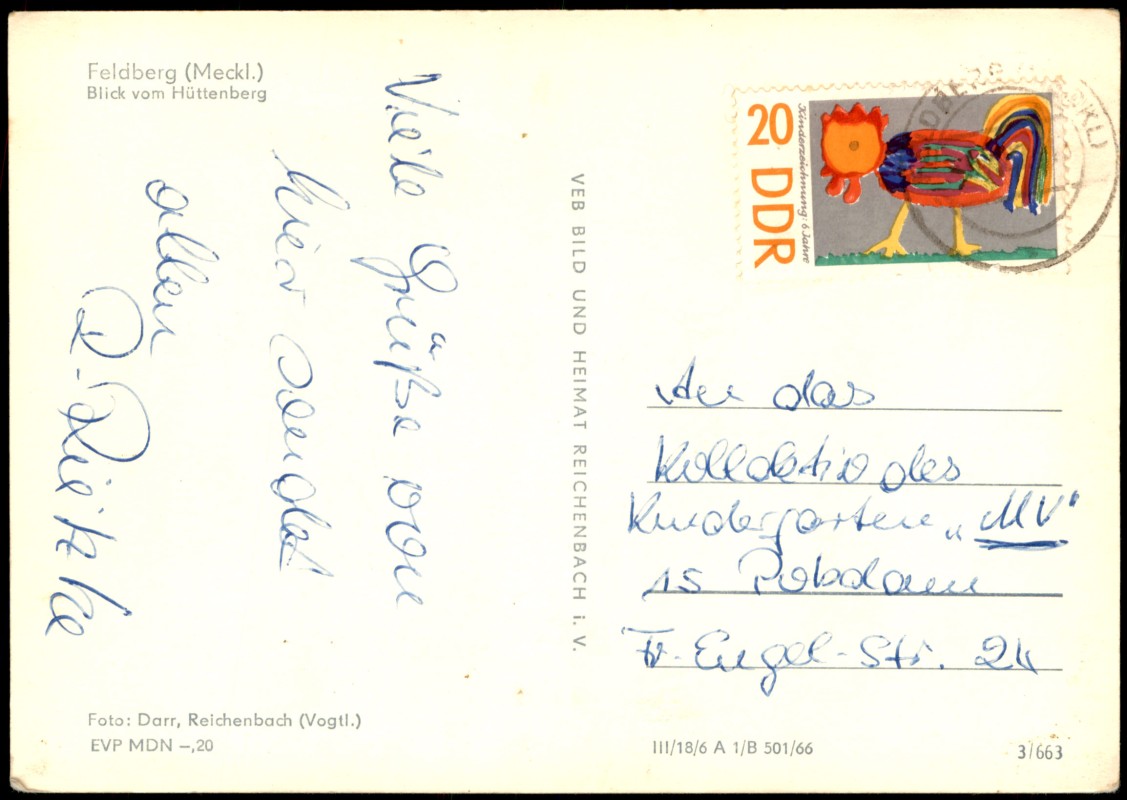 Feldberg (Meckl.)
Blick vom Hüttenberg
Viele Grüße von
hier sendet
allen
R. Rietzke
VEB BILD UND HEIMAT REICHENBACH i. V.
20 DDR
Kinderzeichnung: 6 Jahre
An das
Kollektiv des
Kindergarten „MV"
15 Potsdam
Fr.-Engel-Str. 24
Foto: Darr, Reichenbach (Vogtl.)
EVP MDN –,20
III/18/6 A 1/B 501/66
3/663